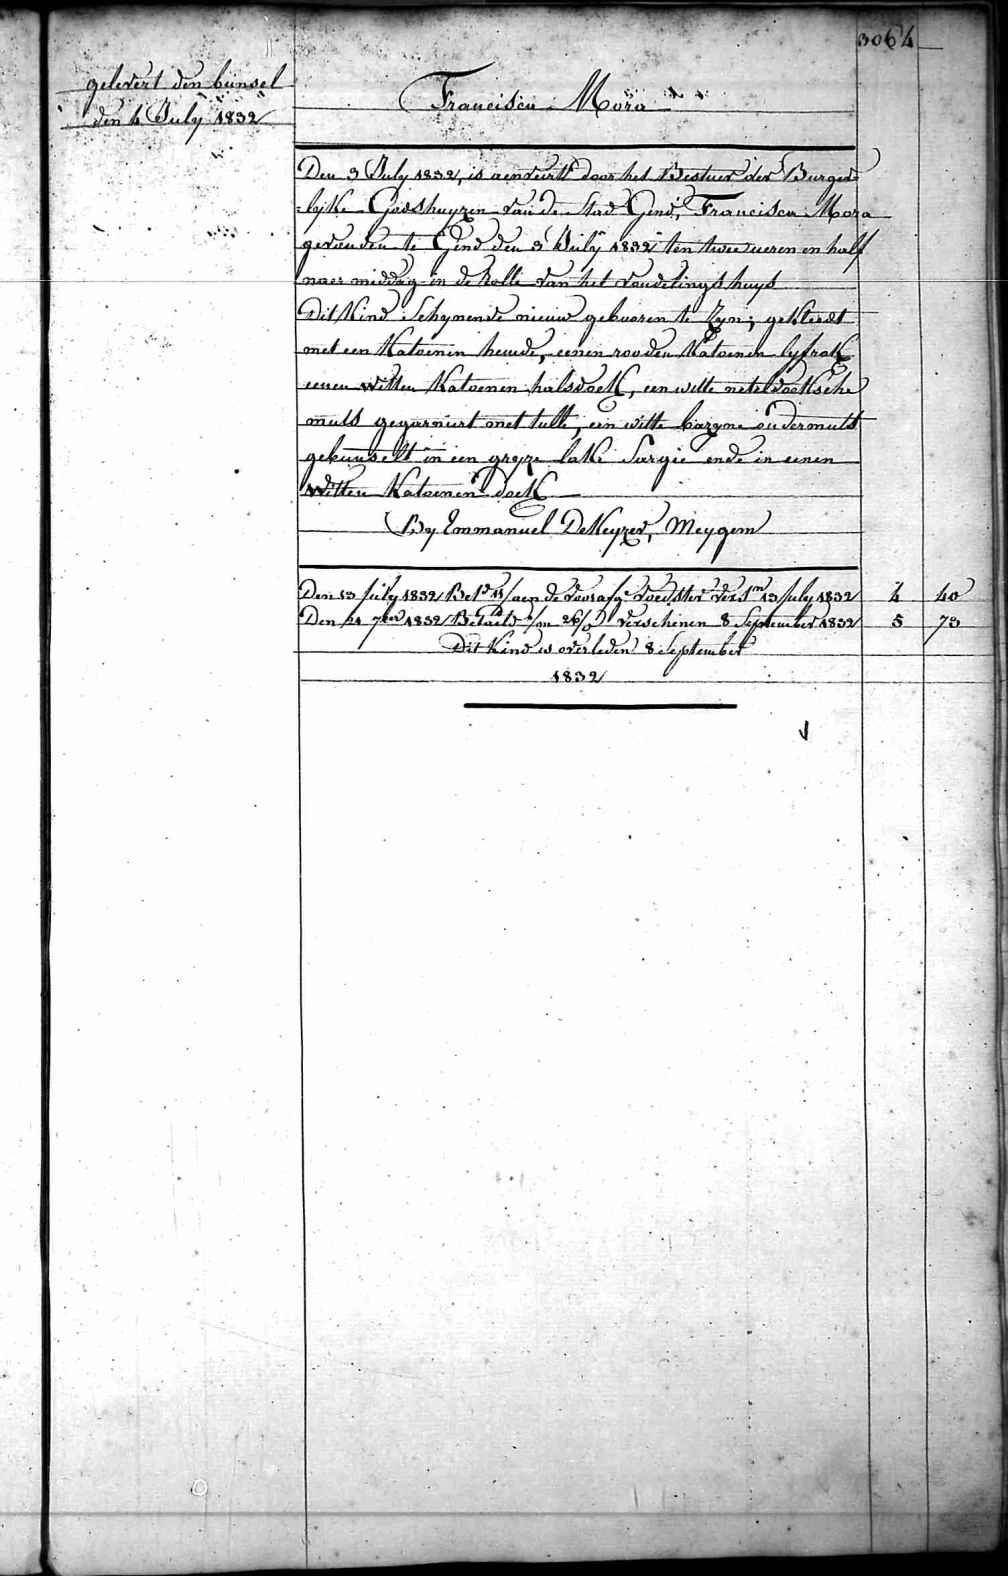 3064
gelevert den bunsel
den 4 July 1832
Francisca Mora
Den 3 July 1832, is aenveirt door het Bestuer der Burger
=lyke Godshuyzen van de Stad Gend, Francisca Mora
gevonden te Gend den 3 July 1832 ten twee ueren en half
naer middag in de Rolle van het vondelingshuys
Dit Kind schynende nieuw gebooren te Zyn; gekleedt
met een Katoenen hemde, eenen rooden Katoenen lyfrok
eenen witten Katoenen halsdoek, een witte neteldoeksche
muts gegarnirt met tulle, een witte bazyne ondermuts
gebunselt in een gryze lake Sargie ende in eenen
witten Katoenen doek
By Emmanuel DeKeyzer, Meygem
Den 13 July 1832 Bet.d 11/ aen de voedster vers.m 13 July 1832 4 40
Den 21 7ber 1832 Betaeld 1/m 26/d verschenen 8 September 1832 5 73
Dit Kind is overleden 8 September
1832